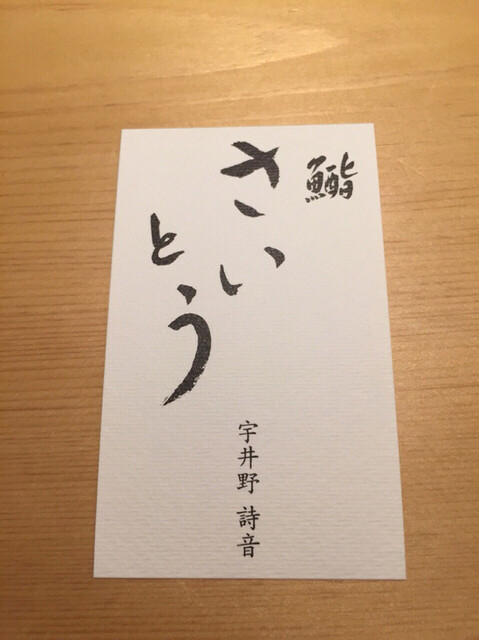 鮨
さいとう
宇井野 詩音